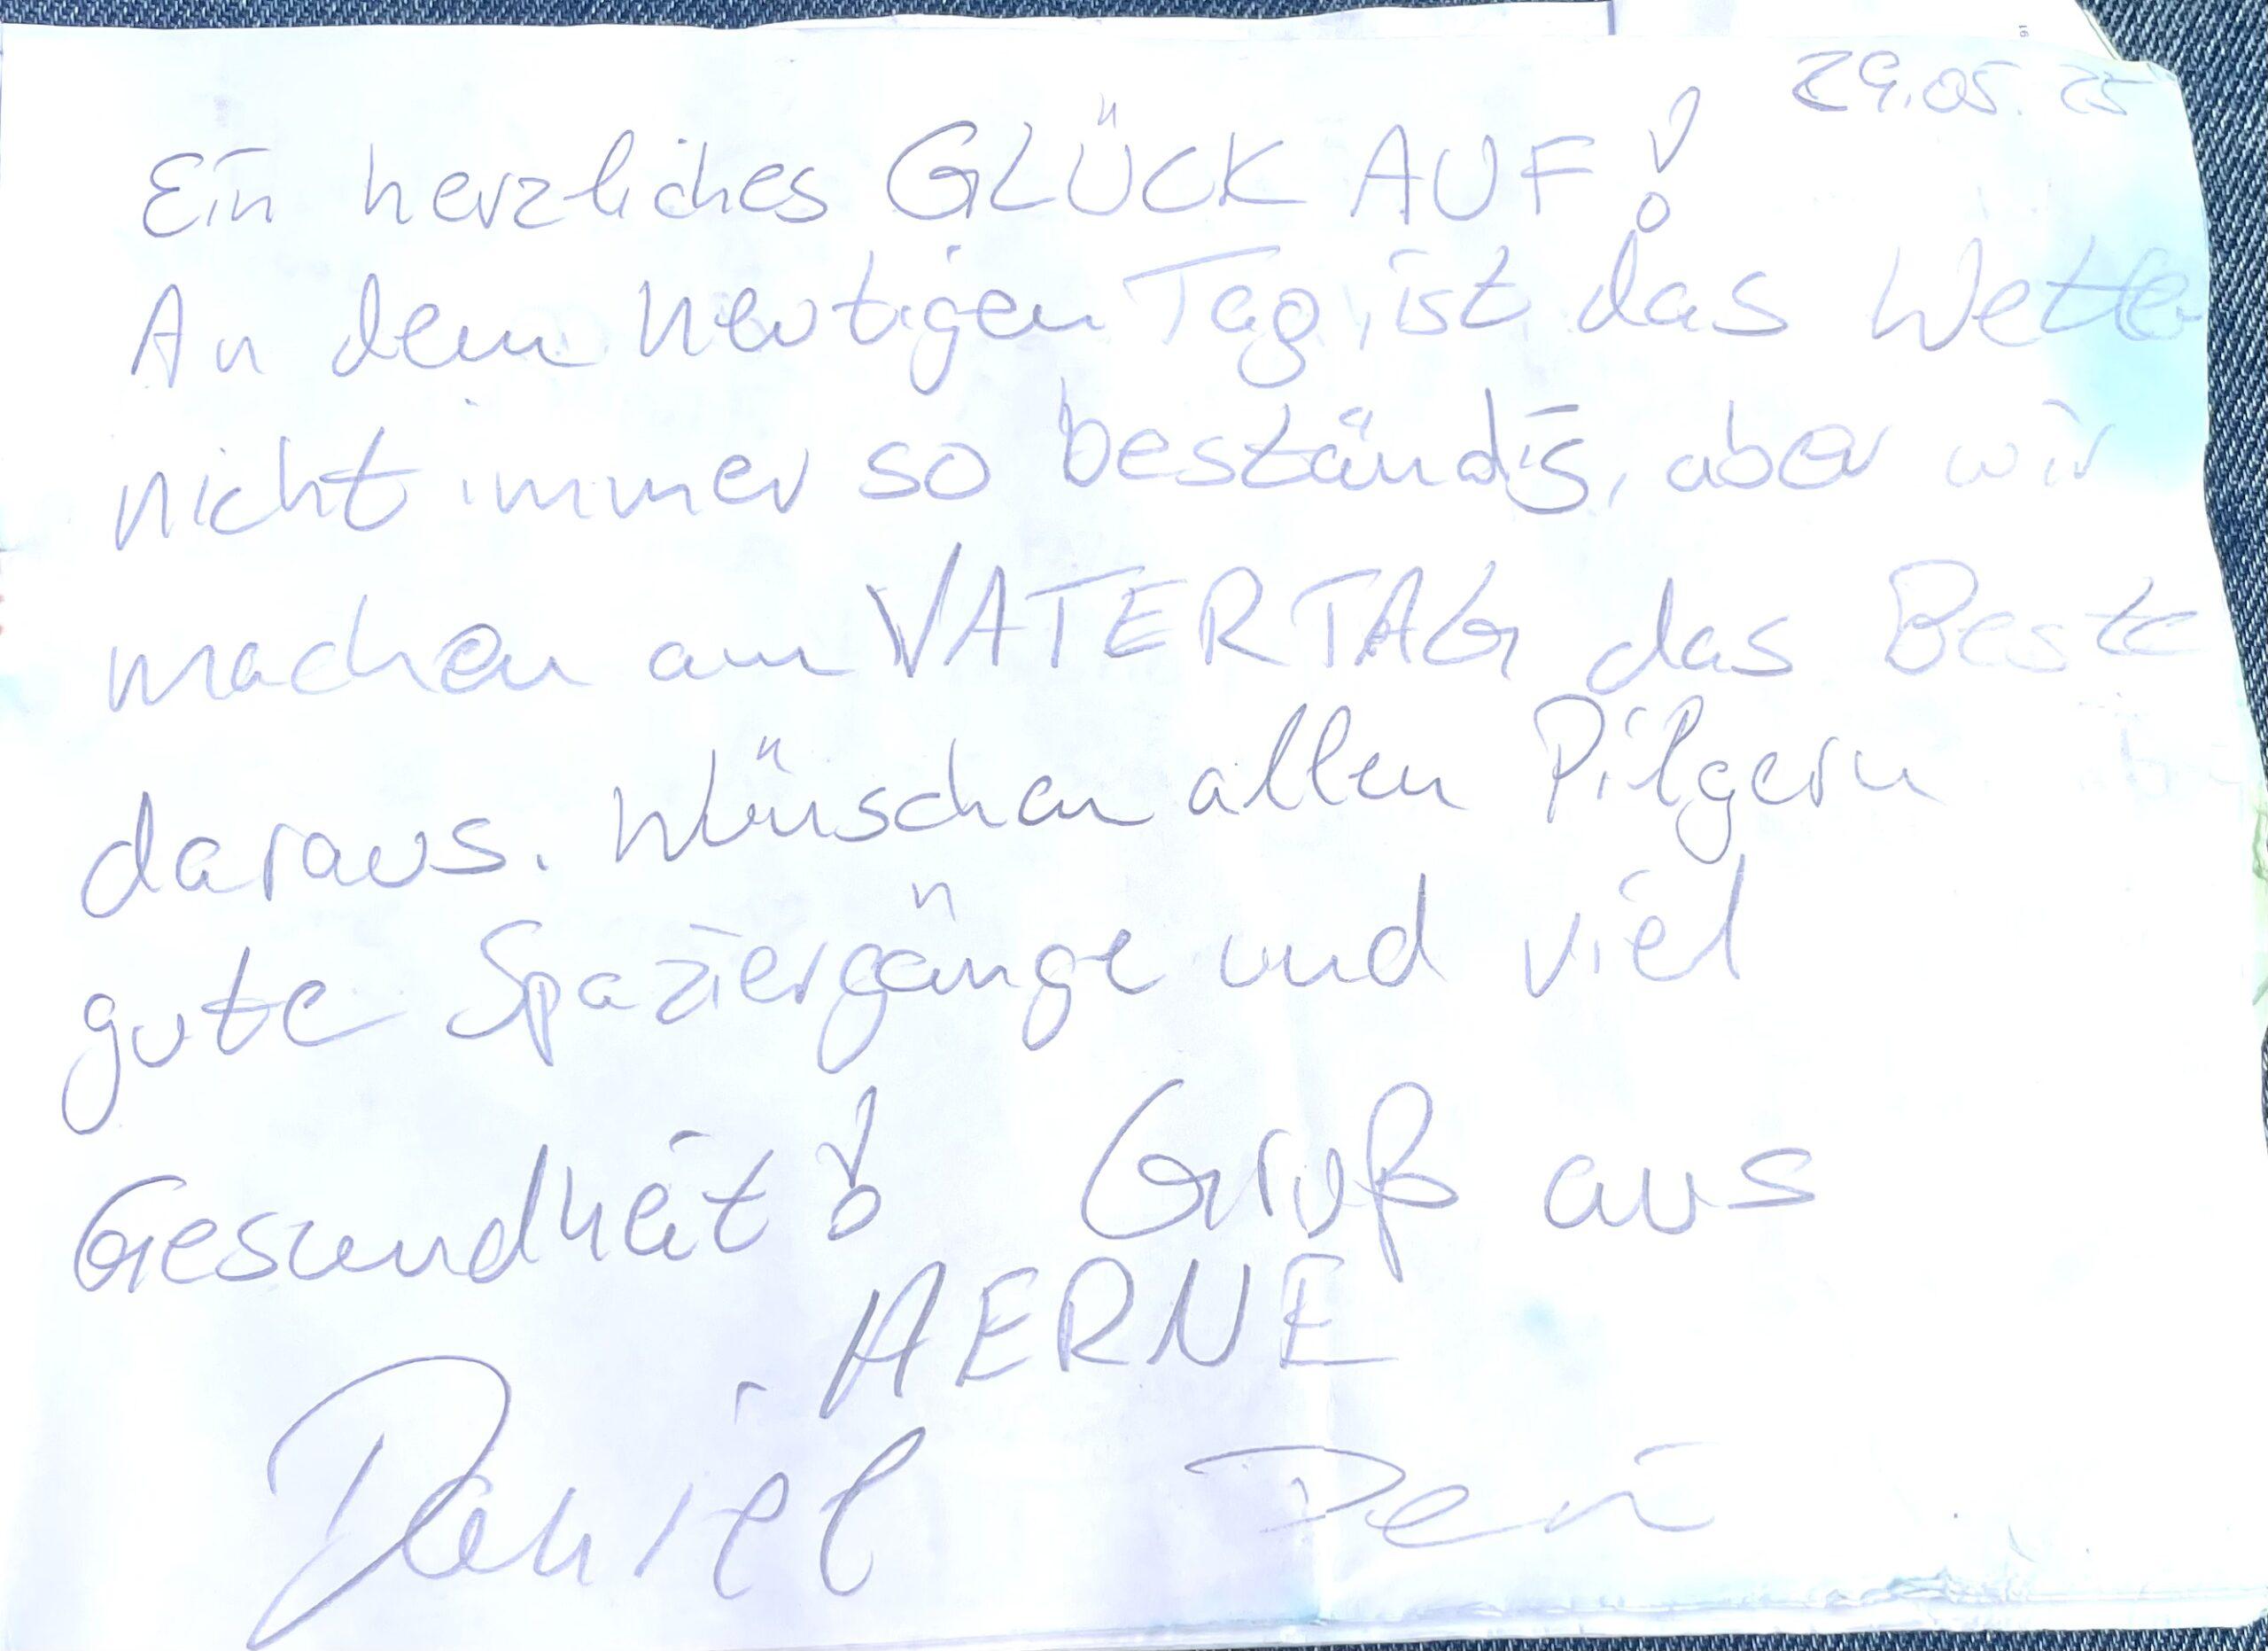 29.05.25
Ein herzliches GLÜCK AUF!
An dem heutigen Tag, ist das Wetter
nicht immer so beständig, aber wir
machen am VATERTAG das Beste
daraus. Wünschen allen Pilgern
gute Spaziergänge und viel
Gesundheit! Gruß aus
HERNE
Daniel